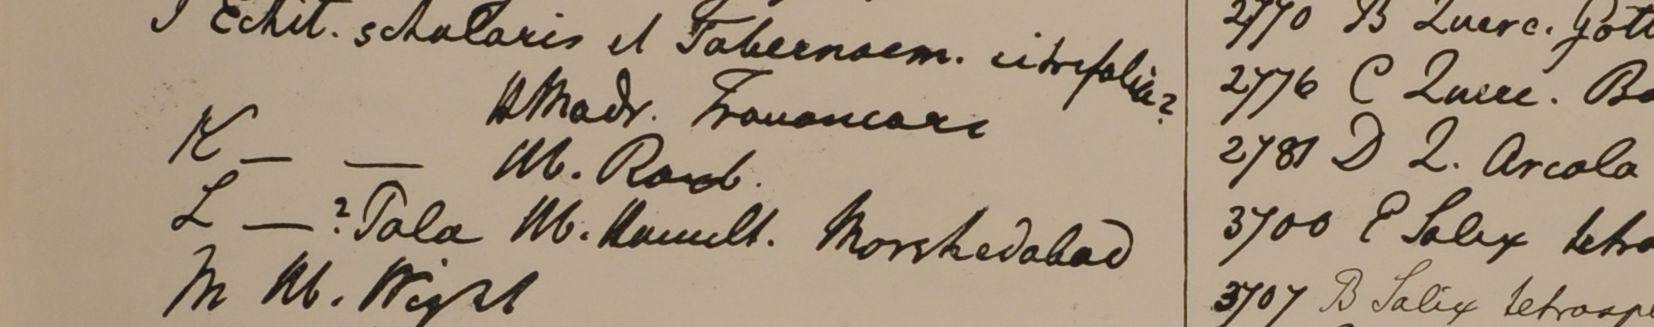 J Echit. scholaris et Tabernaem. citrifolia?
H Madr. Travancore
K — — Hb. Roxb.
L — ? Pala Hb. Hamilt. Morshedabad
M Hb. Wight
2770 B Querc. Gott
2776 C Querc. Ba
2781 D Q. Arcola
3700 E Salix tetra
3707 B Salix tetraspe